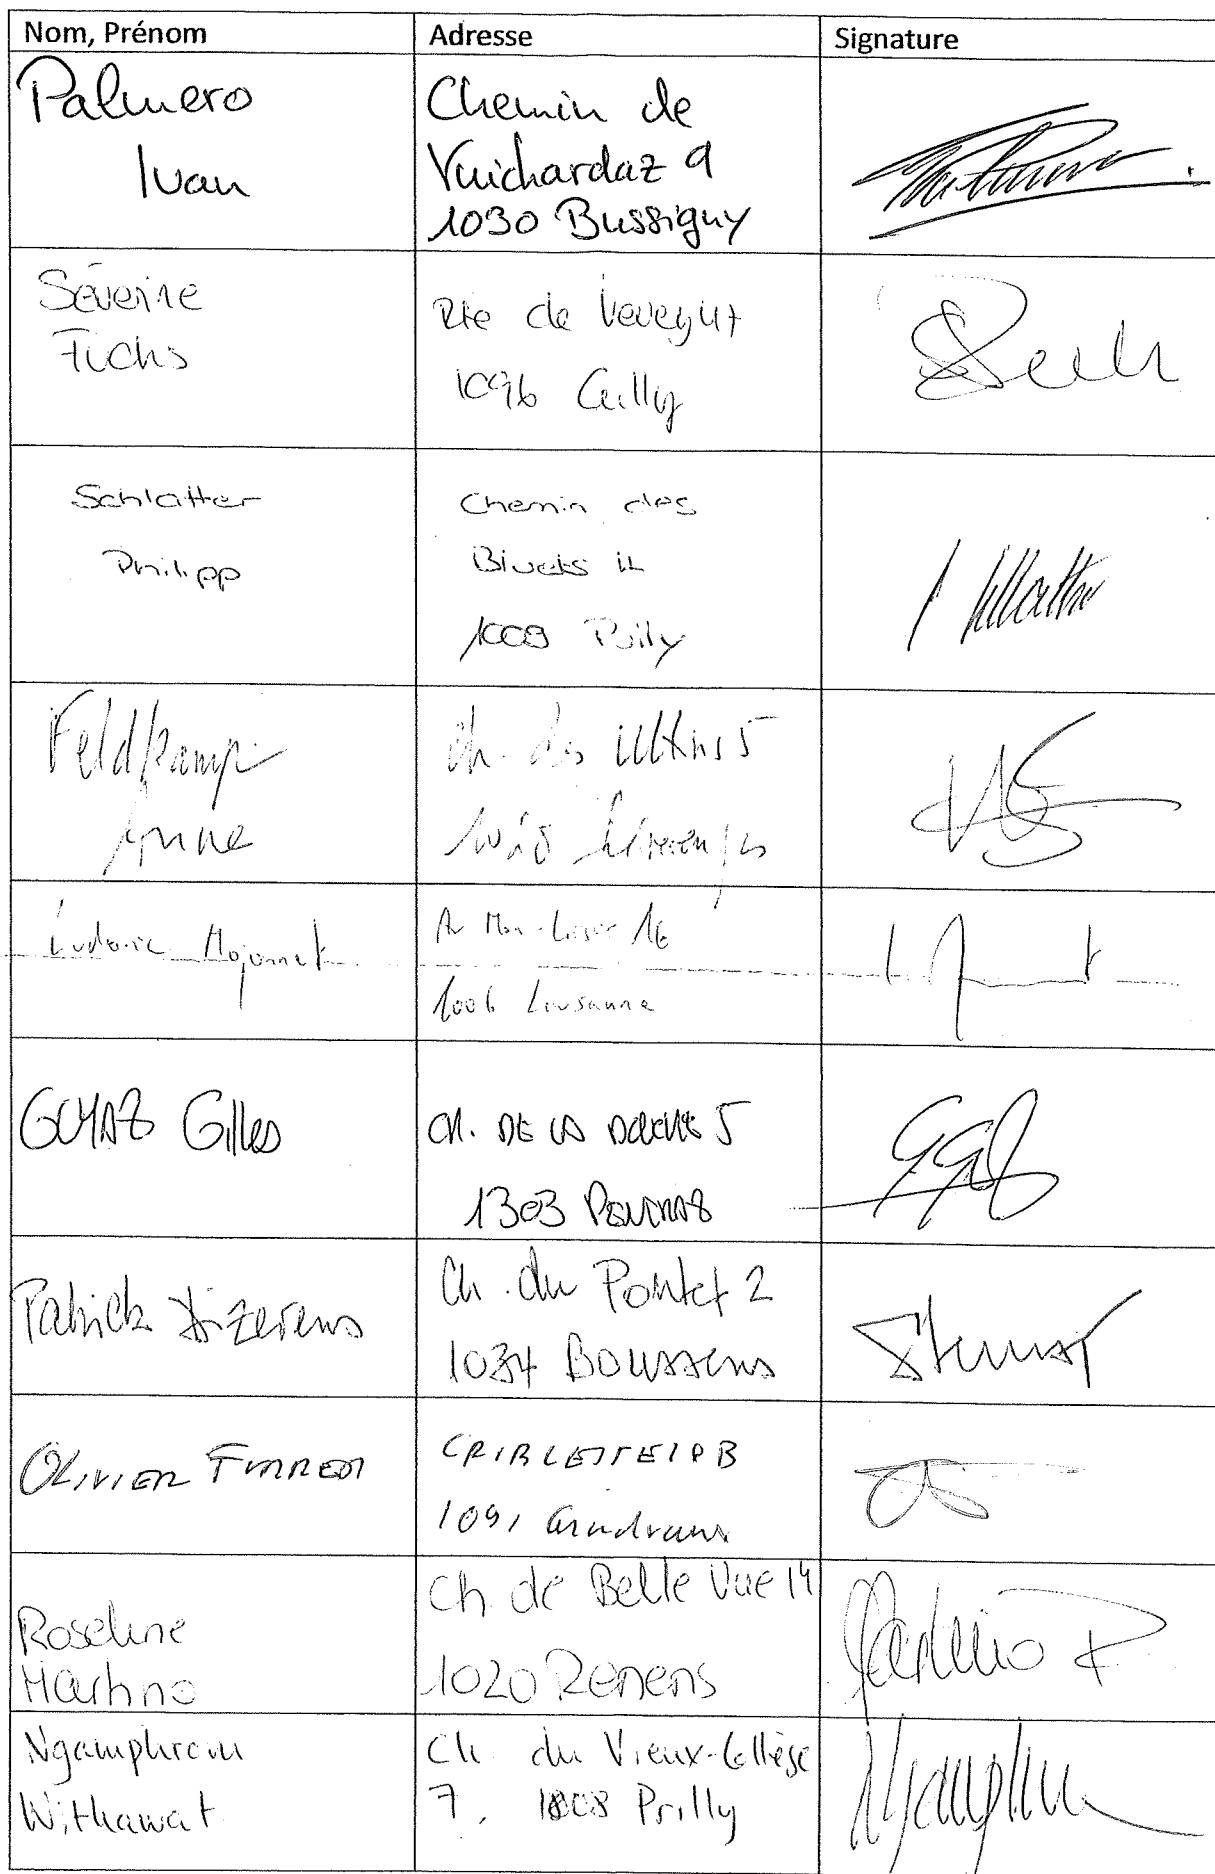 Nom, Prénom Adresse Signature
Palmero
Ivan
Chemin de
Vuichardaz 9
1030 Bussigny
Séverine
Fuchs
Rte de
1096 Cully
Schlatter
Philipp
Chemin des
Bluets
1009 Pully
Feldkamp
Anne
Ch. des 5
1028
Ludovic Mojonnet
Av Mon-Loisir 16
1006 Lausanne
GOYAZ Gilles
CH. DE LA 5
1303 PENTHAZ
Patrick Dizerens
Ch. du Pontet 2
1034 Boussens
OLIVIER FURRER
1091 Grandvaux
Roseline
Martino
Ch. de Belle Vue 14
1020 Renens
Martino R
Ngamphrom
Withawat
Ch. du Vieux-Collège
7, 1008 Prilly